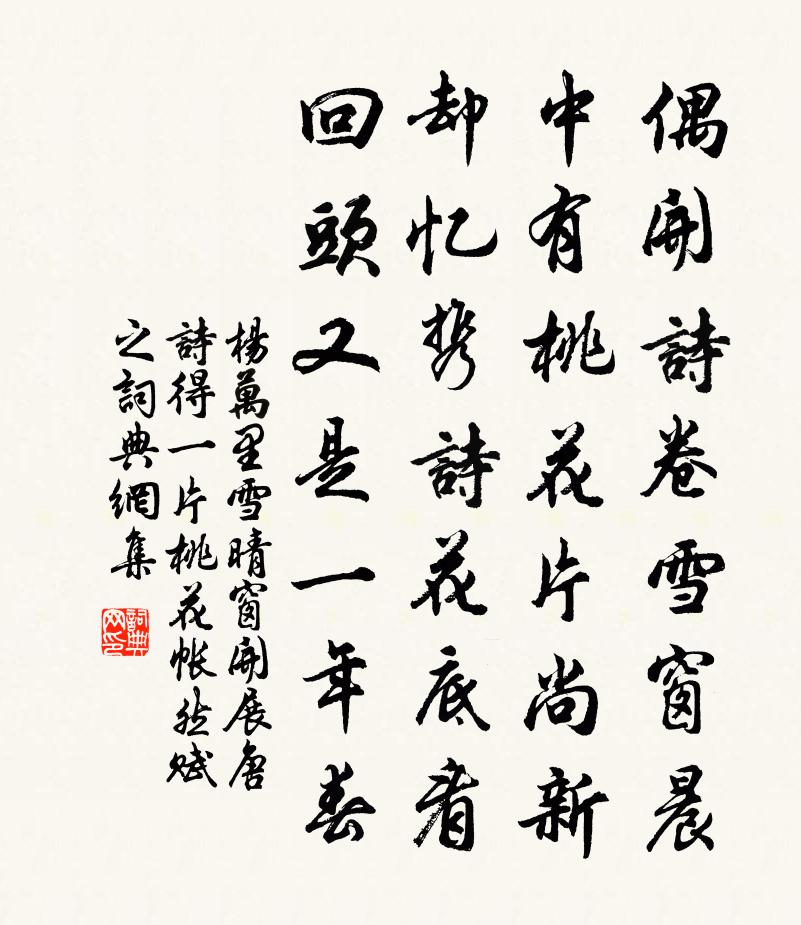 偶開詩卷雪窗晨
中有桃花片尚新
却忆携詩花底看
回頭又是一年春
楊萬里雪晴窗開展唐
詩得一片桃花帐然赋
之詞典網集
詞典网印